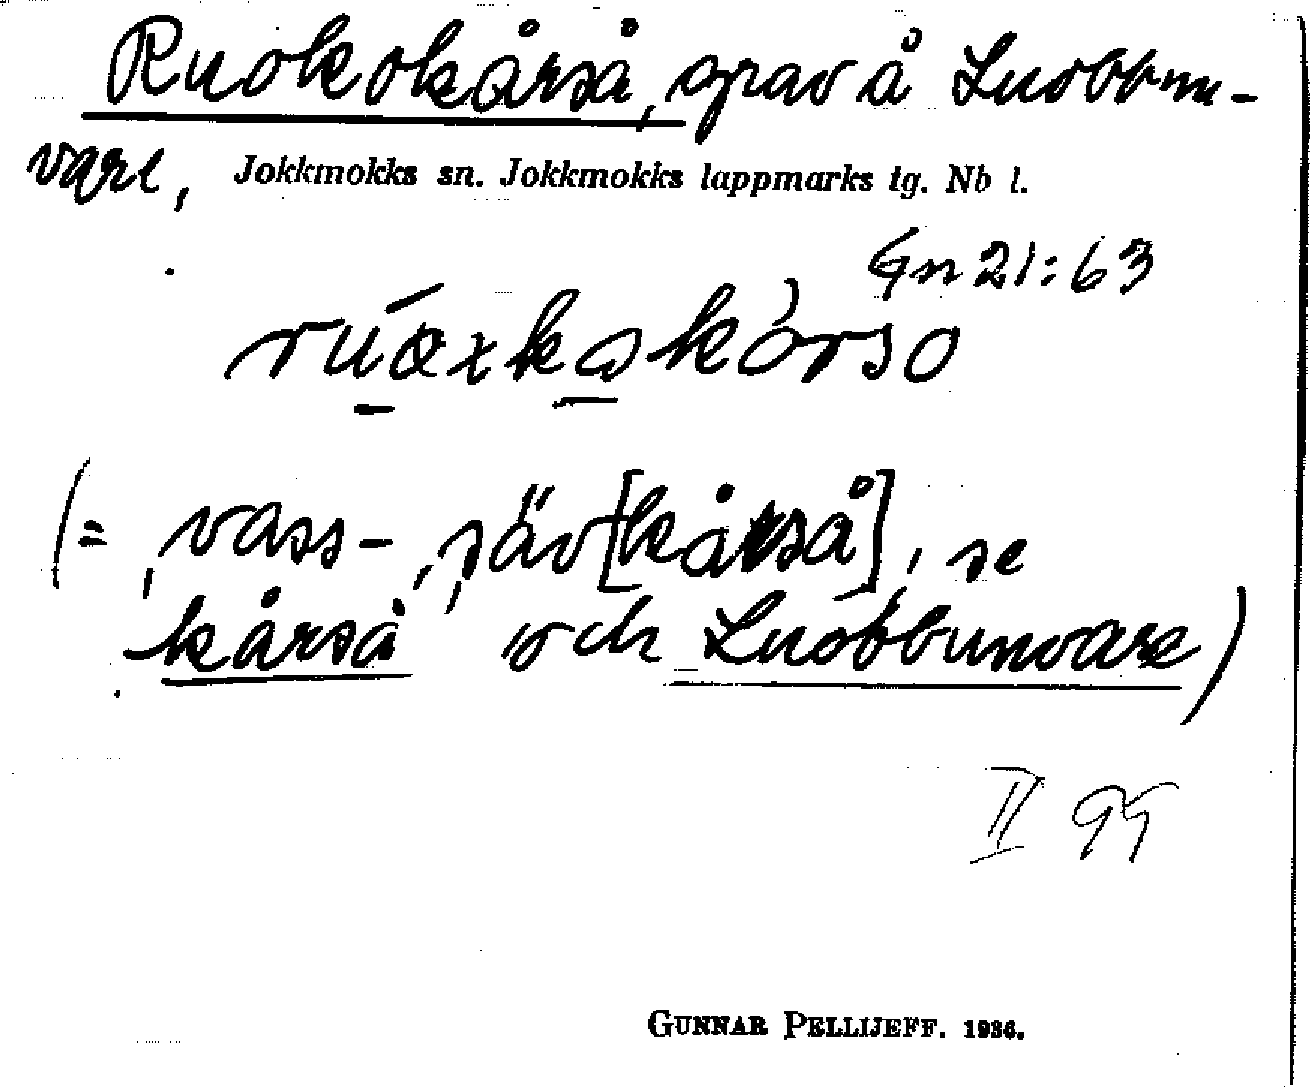 Ruokokårså, grav å Luobbu-
vare, Jokkmokks sn. Jokkmokks lappmarks tg. Nb l.
Gn 21:63
(= 'vass-, säv[kårså]', se
kårså och Luobbunvare)
II 99
GUNNAR PELLIJEFF. 1936.